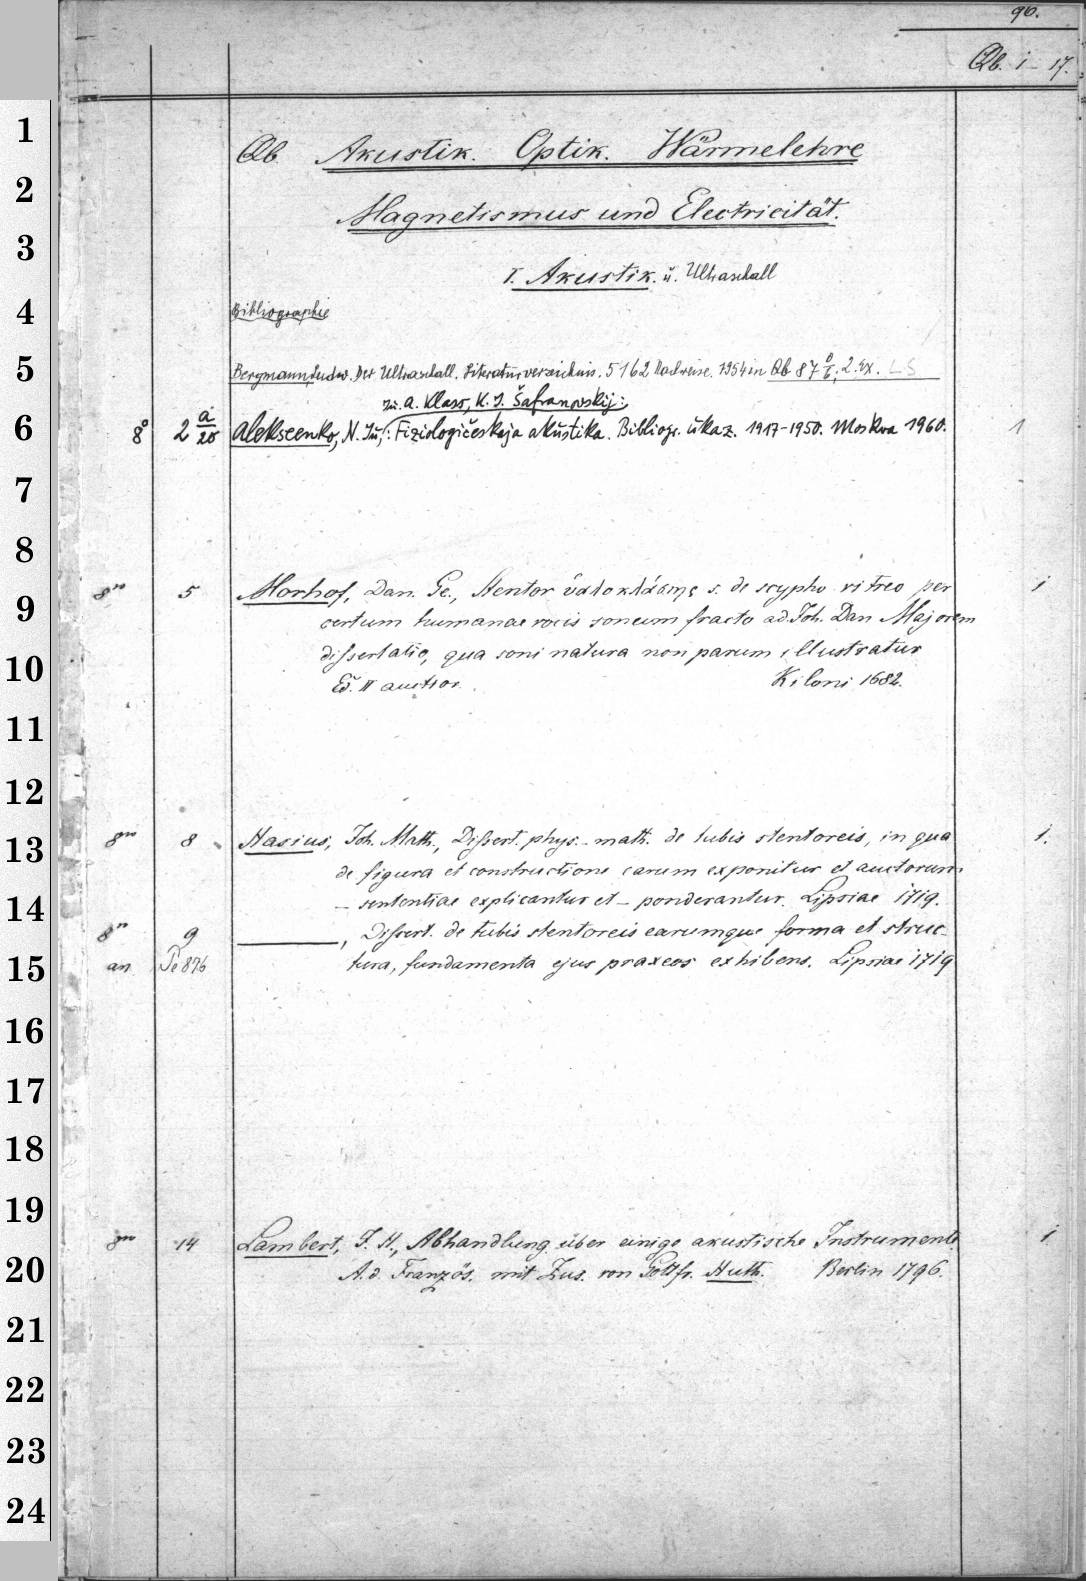 96.
Qb. 1 - 17.
1
Qb. Akustik. Optik. Wärmelehre
2
Magnetismus und Electricität.
3
I. Akustik. u. Ultraschall
4
Bibliographie
5
Bergmann, Ludw. Der Ultraschall. Literaturverzeichnis. 5162 Nachweise. 1954 in Qb 87 2. Ex. LS
Ju. A. Klass, K. I. Šafranovskij:
6
8° 2 a/20 Alekseenko, N. Ju., Fiziologičeskaja akustika. Bibliogr. ukaz. 1917-1950. Moskva 1960. 1
7
8
8vo 5 Morhof, Dan. Ge., Stentor ὑαλοκλάστης s. de scypho vitreo per 1
9
certum humanae vocis sonum fracto ad. Joh. Dan Majorem
10
dissertatio, qua soni natura non parum illustratur
Ed. II auctior. Kiloni 1682.
11
12
8vo 8 Hasius, Joh. Math., Dissert. phys.-math. de tubis stentoreis, in qua 1.
13
de figura et constructione earum exponitur et auctorum
14
- sententiae explicantur et - ponderantur. Lipsiae 1719.
8vo 9 ———, Dissert. de tubis stentoreis earumque forma et struc-
15
an Pe 876 tura, fundamenta ejus praxeos exhibens. Lipsiae 1719
16
17
18
19
8vo 14 Lambert, J. H., Abhandlung über einige akustische Instrumente. 1
20
A. d. Französ. mit Zus. von Gottfr. Huth. Berlin 1796.
21
22
23
24